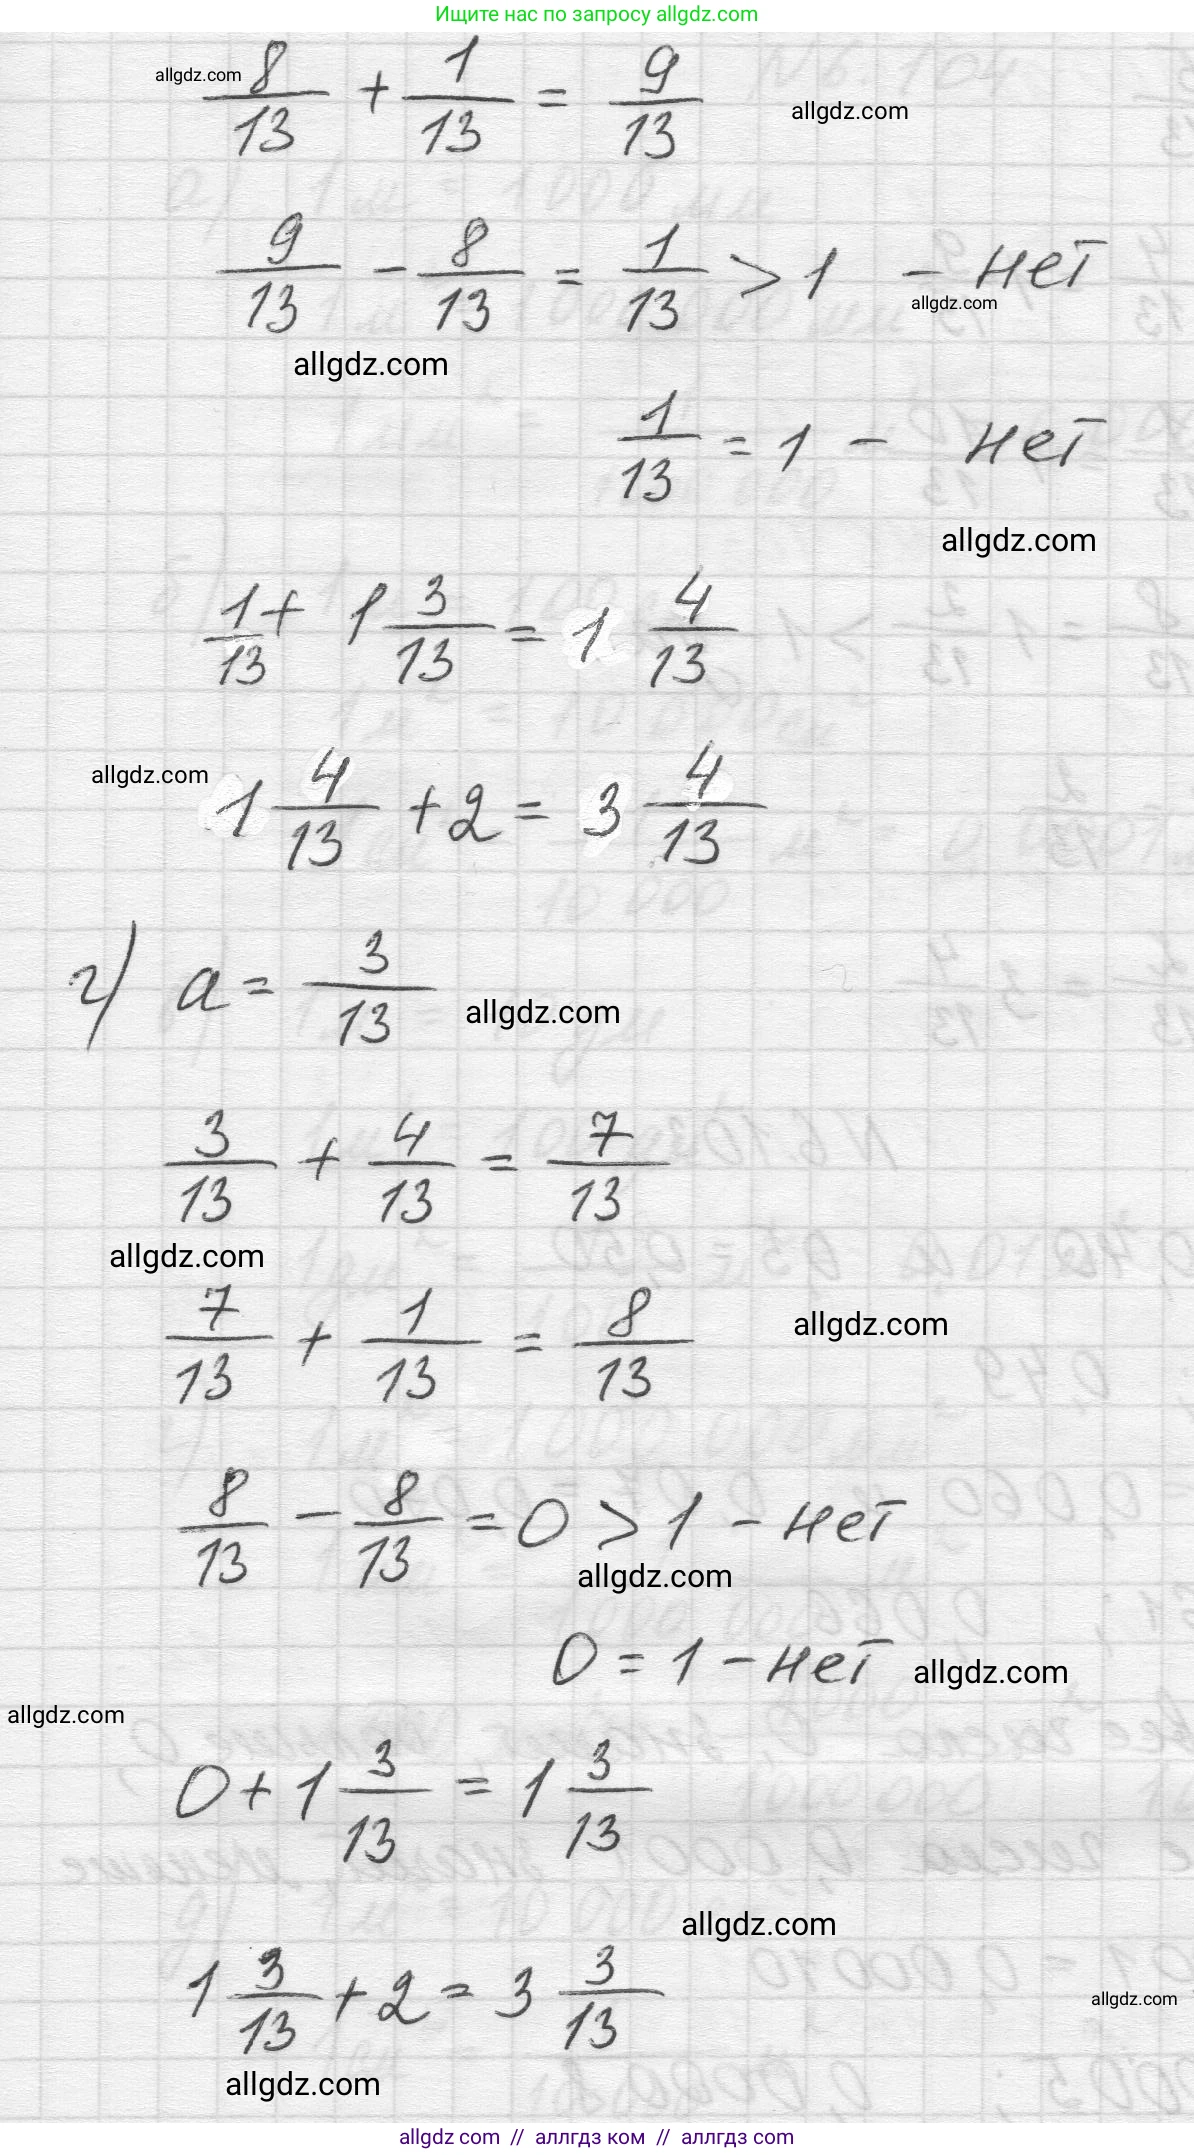 Ищите нас по запросу allgdz.com
allgdz.com
8/13 + 1/13 = 9/13
allgdz.com
9/13 - 8/13 = 1/13 > 1 - нет
allgdz.com
allgdz.com
1/13 = 1 - нет
allgdz.com
1/13 + 1 3/13 = 1 4/13
allgdz.com
1 4/13 + 2 = 3 4/13
г) a = 3/13
allgdz.com
3/13 + 4/13 = 7/13
allgdz.com
7/13 + 1/13 = 8/13
allgdz.com
8/13 - 8/13 = 0 > 1 - нет
allgdz.com
0 = 1 - нет
allgdz.com
allgdz.com
0 + 1 3/13 = 1 3/13
allgdz.com
1 3/13 + 2 = 3 3/13
allgdz.com
allgdz.com
allgdz com // аллгдз ком // аллгдз com